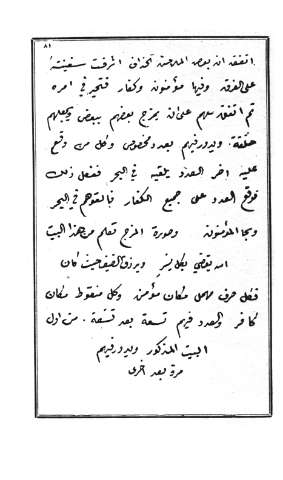 ٨١
اتفق ان بعض الملاحين الحذاق اشرفت سفينته
على الغرق وفيها مؤمنون وكفار فتحير في امره
ثم اتفق معهم على ان يمزج بعضهم ببعض ويجعلهم
حلقة . ويدور فيهم بعدد مخصوص وكل من وقع
عليه اخر العدد يلقيه في البحر ففعل ذلك
فوقع العدد على جميع الكفار فالقوهم في البحر
ونجا المؤمنون وصورة المزج تعلم من هذا البيت
الله يقضي بكل يسر ويرزق الضيف حيث كان
فكل حرف مهمل مكان مؤمن وكل منقوط مكان
كافر والعدد فيهم تسعة بعد تسعة . من اول
البيت المذكور ويدور فيهم
مرة بعد اخرى